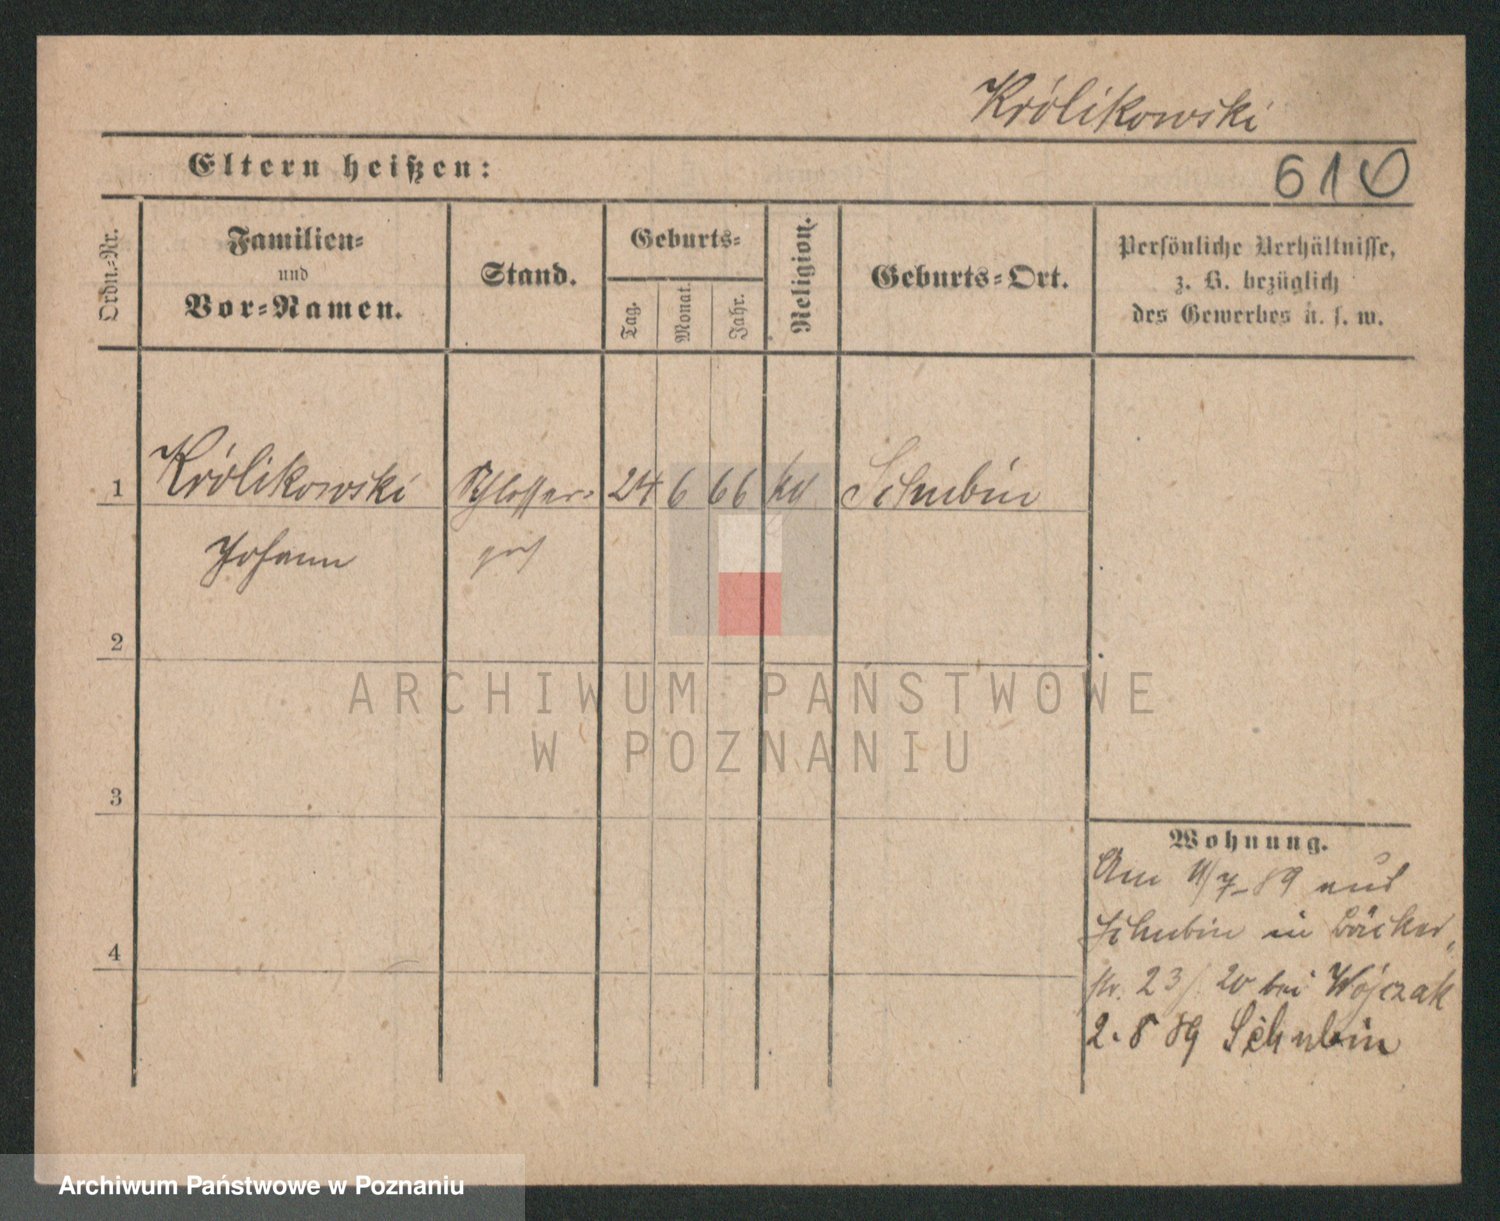 Królikowski
Eltern heißen:
610
Ordn.-Nr.
Familien-
und
Vor-Namen.
Stand.
Geburts-
Tag.
Monat.
Jahr.
Religion.
Geburts-Ort.
Persönliche Verhältnisse,
z. B. bezüglich
des Gewerbes u. s. w.
1 Królikowski Schlosser- 24 6 66 Schubin
Johann
2
3
4
Wohnung.
Am 11/7-89 aus
Schubin in Bäcker
str. 23/20 bei Wójczak
2.8 89 Schubin
ARCHIWUM PAŃSTWOWE
W POZNANIU
Archiwum Państwowe w Poznaniu